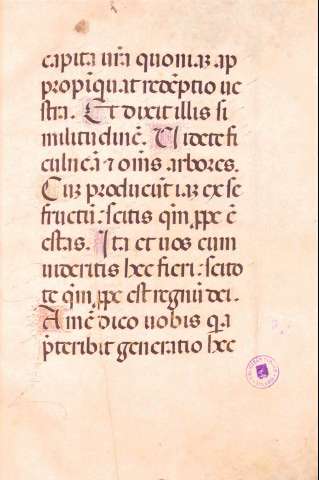 capita ur̃a quoniaꝫ ap
propĩquat redẽptio ue
stra. Et dixit illis si
militudinẽ. Uidete fi
culneã ⁊ om̃s arbores.
Cuꝫ producũt iaꝫ ex se
fructũ: scitis qm̃ ꝓpe ẽ
estas. Ita et uos cum
uideritis hec fieri: scito
te qm̃ ꝓpe est regnũ dei.
Amẽ dico uobis q̃a
p̃teribit generatio hec